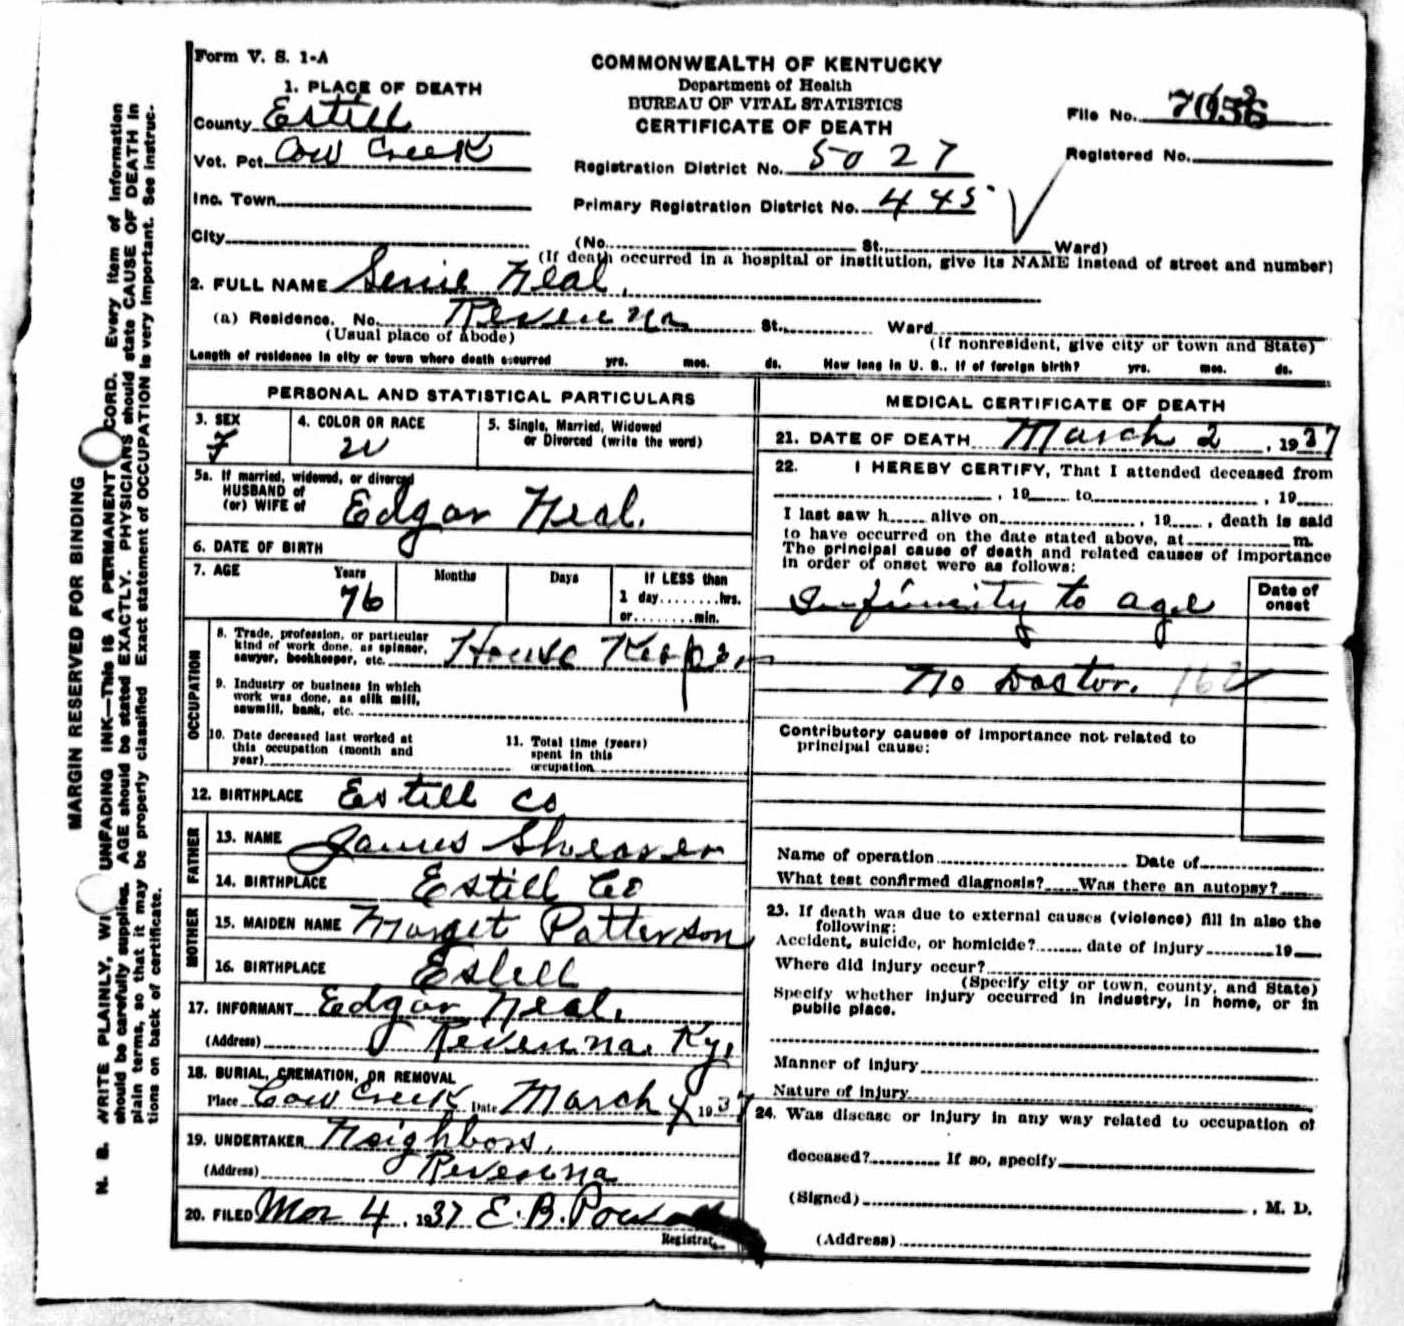 Form V. S. 1-A
COMMONWEALTH OF KENTUCKY
Department of Health
BUREAU OF VITAL STATISTICS
CERTIFICATE OF DEATH
File No.
Registered No.
1. PLACE OF DEATH
County Estill
Vot. Pct. Cow Creek
Inc. Town
City
Registration District No. 5027
Primary Registration District No. 445
(No. St., Ward)
(If death occurred in a hospital or institution, give its NAME instead of street and number)
2. FULL NAME Neal
(a) Residence. No. Revenna St., Ward
(Usual place of abode) (If nonresident, give city or town and State)
Length of residence in city or town where death occurred yrs. mos. ds. How long in U. S., if of foreign birth? yrs. mos. ds.
PERSONAL AND STATISTICAL PARTICULARS
3. SEX F
4. COLOR OR RACE W
5. Single, Married, Widowed
or Divorced (write the word)
5a. If married, widowed, or divorced
HUSBAND of
(or) WIFE of Edgar Neal.
6. DATE OF BIRTH
7. AGE Years 76 Months Days If LESS than
1 day........hrs.
or........min.
OCCUPATION
8. Trade, profession, or particular
kind of work done, as spinner,
sawyer, bookkeeper, etc. House Keeper
9. Industry or business in which
work was done, as silk mill,
sawmill, bank, etc.
10. Date deceased last worked at
this occupation (month and
year)
11. Total time (years)
spent in this
occupation
12. BIRTHPLACE Estill Co
FATHER
13. NAME James Shearer
14. BIRTHPLACE Estill Co
MOTHER
15. MAIDEN NAME Marget Patterson
16. BIRTHPLACE Estell
17. INFORMANT Edgar Neal.
(Address) Revenna. Ky.
18. BURIAL, CREMATION, OR REMOVAL
Place Cow Creek Date March 4 1937
19. UNDERTAKER Neighbors.
(Address) Revenna
20. FILED Mar 4, 1937 E. B.
Registrar.
MEDICAL CERTIFICATE OF DEATH
21. DATE OF DEATH March 2, 1937
22. I HEREBY CERTIFY, That I attended deceased from
, 19 to , 19
I last saw h alive on , 19 , death is said
to have occurred on the date stated above, at m.
The principal cause of death and related causes of importance
in order of onset were as follows:
Date of
onset
Infirmity to age
No Doctor. 162
Contributory causes of importance not related to
principal cause:
Name of operation Date of
What test confirmed diagnosis? Was there an autopsy?
23. If death was due to external causes (violence) fill in also the
following:
Accident, suicide, or homicide? date of injury 19
Where did injury occur?
(Specify city or town, county, and State)
Specify whether injury occurred in industry, in home, or in
public place.
Manner of injury
Nature of injury
24. Was disease or injury in any way related to occupation of
deceased? If so, specify
(Signed) , M. D.
(Address)
MARGIN RESERVED FOR BINDING
N. B. WRITE PLAINLY, WI UNFADING INK—This is A PERMANENT CORD. Every item of information
should be carefully supplied. AGE should be stated EXACTLY. PHYSICIANS should state CAUSE OF DEATH in
plain terms, so that it may be properly classified. Exact statement of OCCUPATION is very important. See instruc-
tions on back of certificate.